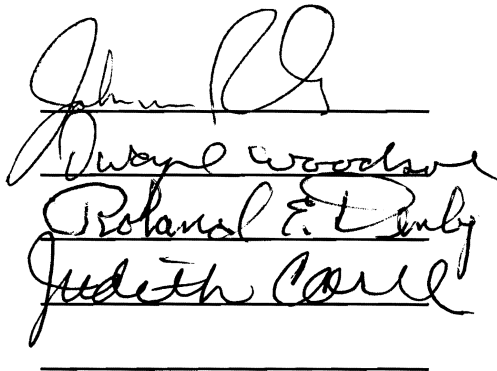 John
Dwayne Woodson
Roland E. Denby
Judith